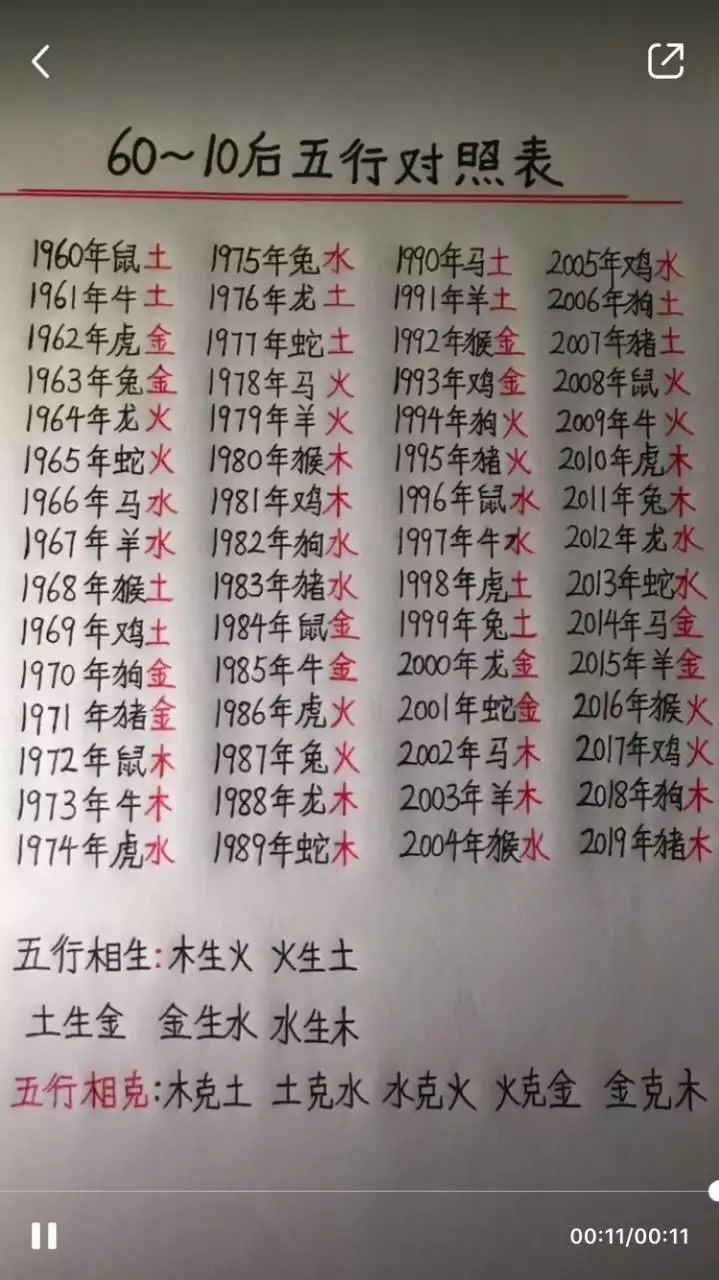 60~10后五行对照表
1960年鼠土 1975年兔水 1990年马土 2005年鸡水
1961年牛土 1976年龙土 1991年羊土 2006年狗土
1962年虎金 1977年蛇土 1992年猴金 2007年猪土
1963年兔金 1978年马火 1993年鸡金 2008年鼠火
1964年龙火 1979年羊火 1994年狗火 2009年牛火
1965年蛇火 1980年猴木 1995年猪火 2010年虎木
1966年马水 1981年鸡木 1996年鼠水 2011年兔木
1967年羊水 1982年狗水 1997年牛水 2012年龙水
1968年猴土 1983年猪水 1998年虎土 2013年蛇水
1969年鸡土 1984年鼠金 1999年兔土 2014年马金
1970年狗金 1985年牛金 2000年龙金 2015年羊金
1971年猪金 1986年虎火 2001年蛇金 2016年猴火
1972年鼠木 1987年兔火 2002年马木 2017年鸡火
1973年牛木 1988年龙木 2003年羊木 2018年狗木
1974年虎水 1989年蛇木 2004年猴水 2019年猪木
五行相生:木生火 火生土
土生金 金生水 水生木
五行相克:木克土 土克水 水克火 火克金 金克木
00:11/00:11